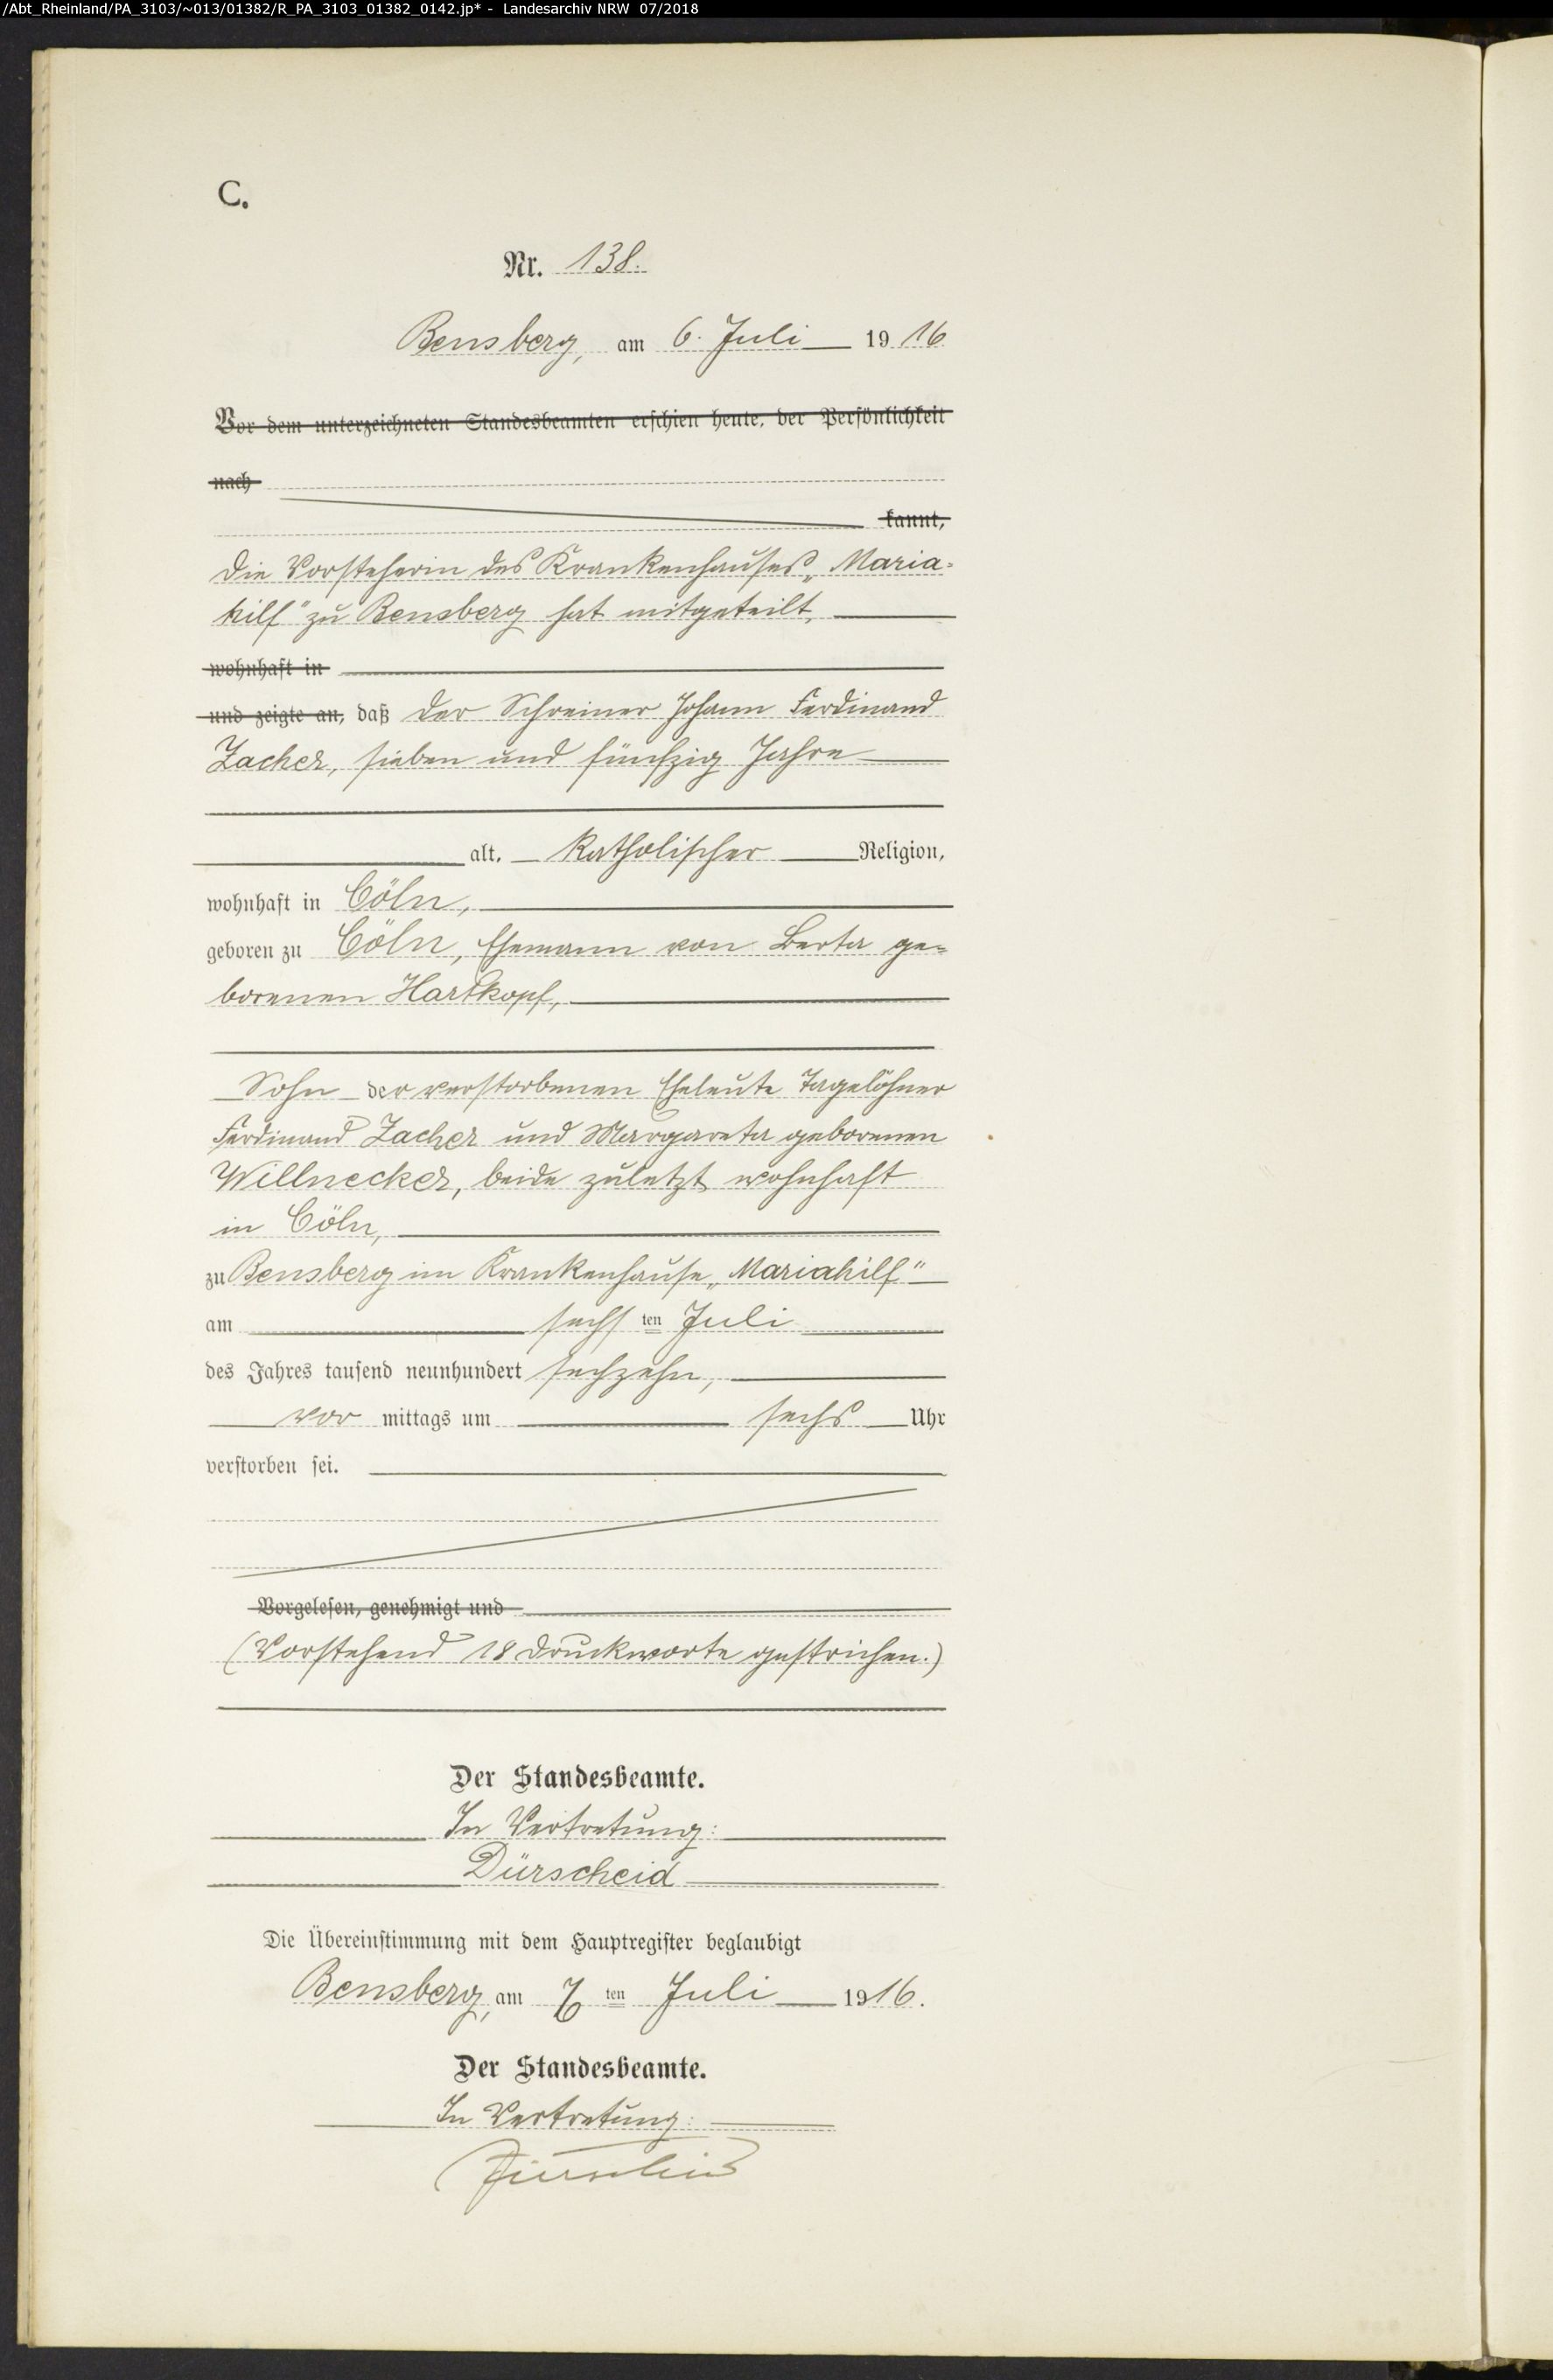 /Abt_Rheinland/PA_3103/~013/01382/R_PA_3103_01382_0142.jp* - Landesarchiv NRW 07/2018
C.
Nr. 138.
Bensberg, am 6. Juli 1916
Vor dem unterzeichneten Standesbeamten erschien heute, der Persönlichkeit
nach
kannt,
Die Vorsteherin des Krankenhauses „Maria-
hilf" zu Bensberg hat mitgeteilt,
wohnhaft in
und zeigte an, daß der Schreiner Johann Ferdinand
Zacher, sieben und fünfzig Jahre
alt, katholischer Religion,
wohnhaft in Cöln,
geboren zu Cöln, Ehemann von Berta ge-
borenen Hartkopf,
Sohn der verstorbenen Eheleute Tagelöhner
Ferdinand Zacher und Margareta geborenen
Willnecker, beide zuletzt wohnhaft
in Cöln,
zu Bensberg im Krankenhause „Mariahilf"
am sechsten Juli
des Jahres tausend neunhundert sechzehn,
vor mittags um sechs Uhr
verstorben sei.
Vorgelesen, genehmigt und
(Vorstehend 18 Druckworte gestrichen.)
Der Standesbeamte.
In Vertretung:
Dürscheid
Die Übereinstimmung mit dem Hauptregister beglaubigt
Bensberg, am 7ten Juli 1916.
Der Standesbeamte.
In Vertretung:
Dürscheid